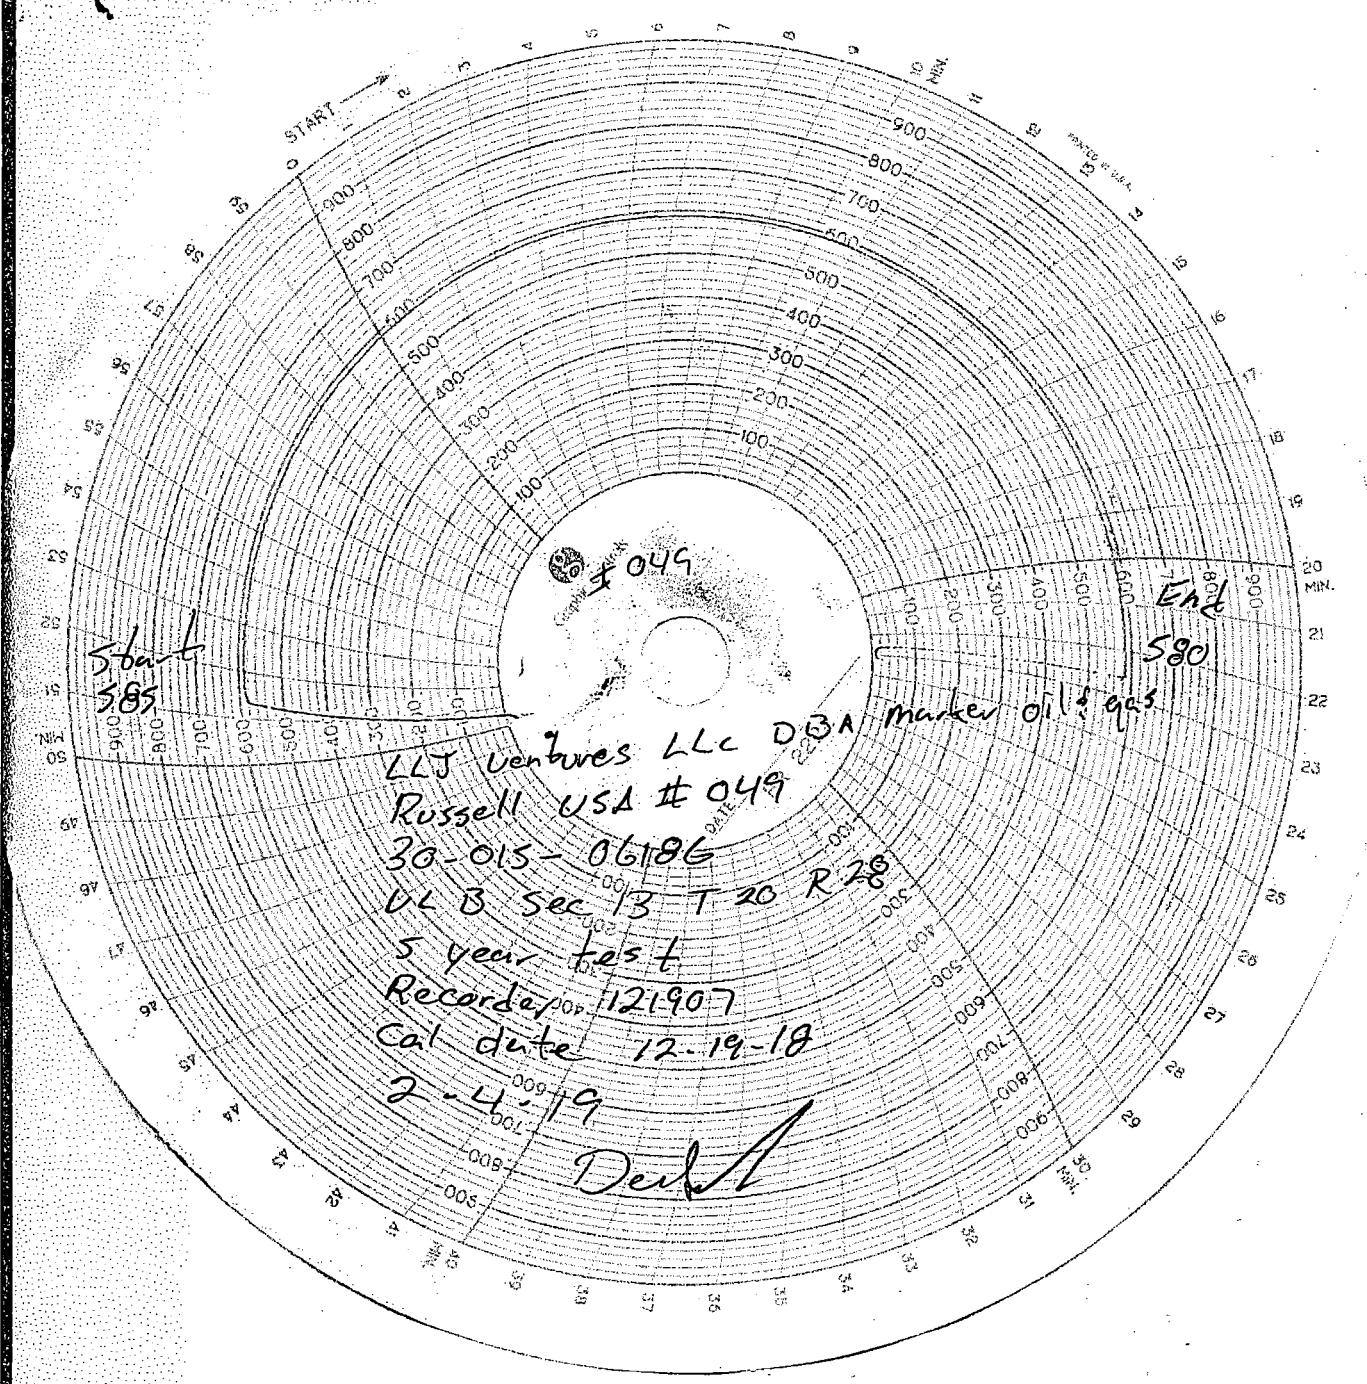 START
0 1 2 3 4 5 6 7 8 9 10 MIN. 11 12 13 14 15 16 17 18 19 20 MIN. 21 22 23 24 25 26 27 28 29 30 MIN. 31 32 33 34 35 36 37 38 39 40 MIN. 41 42 43 44 45 46 47 48 49 50 MIN. 51 52 53 54 55 56 57 58 59
PRINTED IN U.S.A.
900 800 700 600 500 400 300 200 100
900 800 700 600 500 400 300 200 100
100 200 300 400 500 600 700 800 900
100 300 400 500 600 700 800 900
100 200 400 600 700 800 900
900 800 700 600 500 400 300 200 100
# 049
Start
585
End
580
DATE
LLJ Ventures LLc DBA marker oil & gas
Russell USA # 049
30-015-06186
UL B Sec 13 T 20 R 28
5 year test
Recorder 121907
Cal date 12-19-18
2-4-19